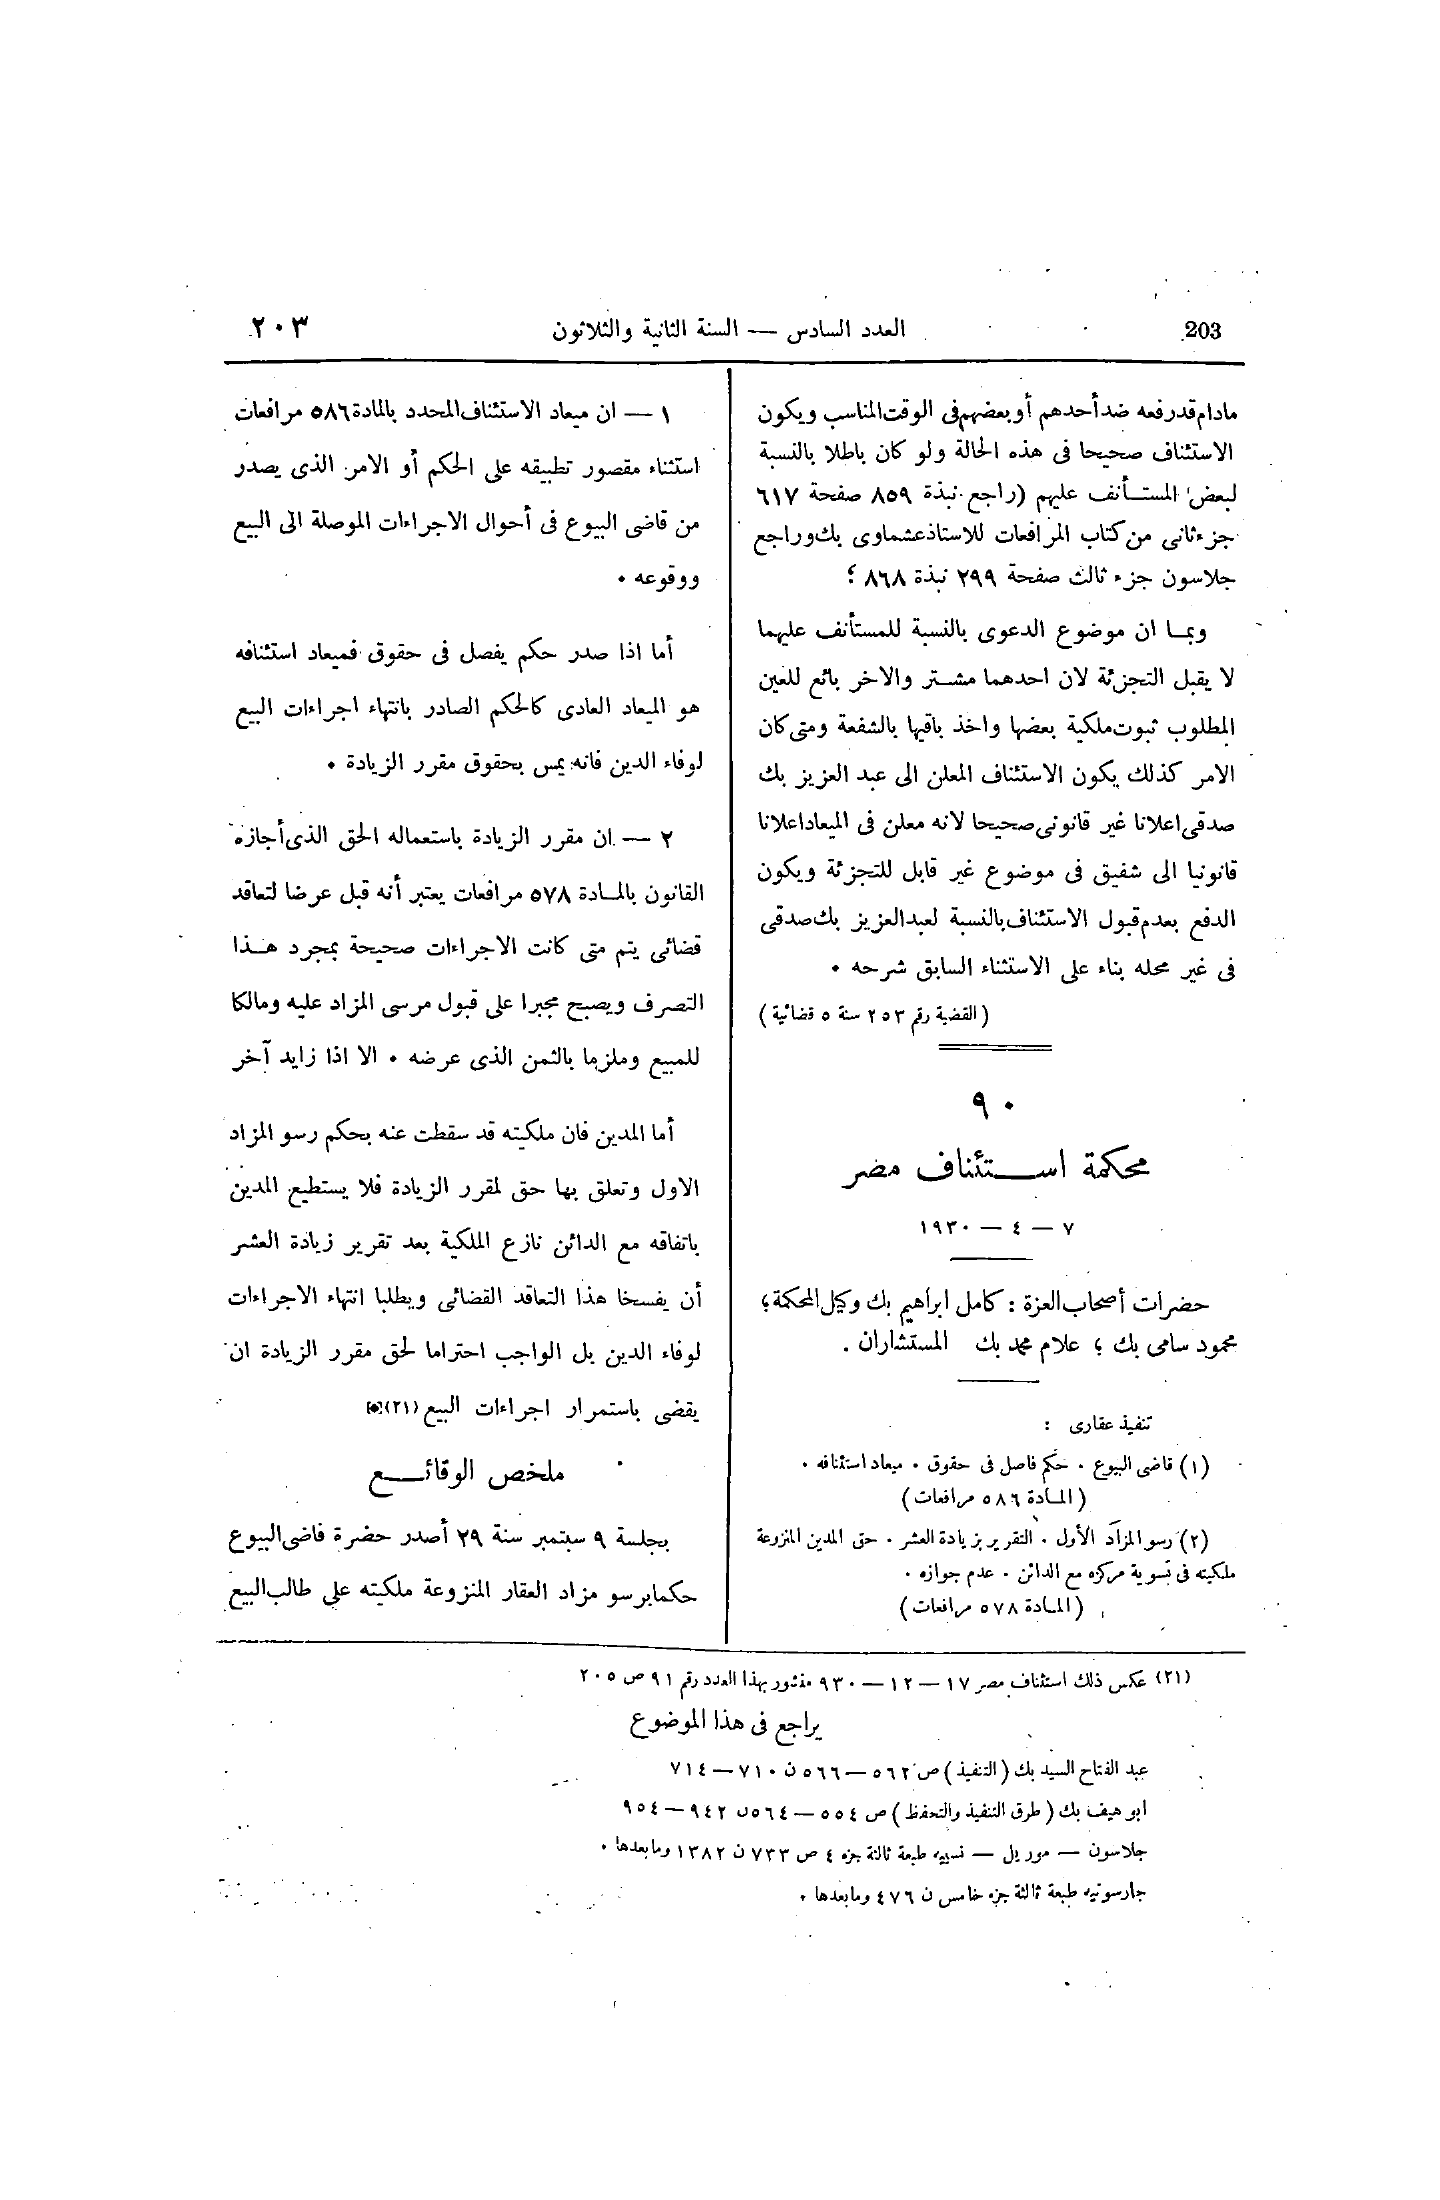 203 العدد السادس — السنة الثانية والثلاثون ٢٠٣
مادام قد رفعه ضد أحدهم أو بعضهم فى الوقت المناسب ويكون
الاستئناف صحيحا فى هذه الحالة ولو كان باطلا بالنسبة
لبعض المستأنف عليهم (راجع نبذة ٨٥٩ صفحة ٦١٧
جزء ثانى من كتاب المرافعات للاستاذ عشماوى بك وراجع
جلاسون جزء ثالث صفحة ٢٩٩ نبذة ٨٦٨ ؛
وبما ان موضوع الدعوى بالنسبة للمستأنف عليهما
لا يقبل التجزئة لان احدهما مشتر والاخر بائع للعين
المطلوب ثبوت ملكية بعضها واخذ باقيها بالشفعة ومتى كان
الامر كذلك يكون الاستئناف المعلن الى عبد العزيز بك
صدقى اعلانا غير قانونى صحيحا لانه معلن فى الميعاد اعلانا
قانونيا الى شفيق فى موضوع غير قابل للتجزئة ويكون
الدفع بعدم قبول الاستئناف بالنسبة لعبد العزيز بك صدقى
فى غير محله بناء على الاستثناء السابق شرحه ٠
(القضية رقم ٢٥٣ سنة ٥ قضائية)
٩٠
محكمة استئناف مصر
٧ — ٤ — ١٩٣٠
حضرات أصحاب العزة : كامل ابراهيم بك وكيل المحكمة ؛
محمود سامى بك ؛ علام محمد بك المستشاران .
تنفيذ عقارى :
(١) قاضى البيوع ٠ حكم فاصل فى حقوق ٠ ميعاد استئنافه ٠
(المادة ٥٨٦ مرافعات)
(٢) رسو المزاد الأول ٠ التقرير بزيادة العشر ٠ حق المدين المنزوعة
ملكيته فى تسوية مركزه مع الدائن ٠ عدم جوازه ٠
(المادة ٥٧٨ مرافعات)
١ — ان ميعاد الاستئناف المحدد بالمادة ٥٨٦ مرافعات
استثناء مقصور تطبيقه على الحكم أو الامر الذى يصدر
من قاضى البيوع فى أحوال الاجراءات الموصلة الى البيع
ووقوعه ٠
أما اذا صدر حكم يفصل فى حقوق فميعاد استئنافه
هو الميعاد العادى كالحكم الصادر بانتهاء اجراءات البيع
لوفاء الدين فانه يمس بحقوق مقرر الزيادة ٠
٢ — ان مقرر الزيادة باستعماله الحق الذى أجازه
القانون بالمادة ٥٧٨ مرافعات يعتبر أنه قبل عرضا لتعاقد
قضائى يتم متى كانت الاجراءات صحيحة بمجرد هذا
التصرف ويصبح مجبرا على قبول مرسى المزاد عليه ومالكا
للمبيع وملزما بالثمن الذى عرضه ٠ الا اذا زايد آخر
أما المدين فان ملكيته قد سقطت عنه بحكم رسو المزاد
الاول وتعلق بها حق لمقرر الزيادة فلا يستطيع المدين
باتفاقه مع الدائن نازع الملكية بعد تقرير زيادة العشر
أن يفسخا هذا التعاقد القضائى ويطلبا انتهاء الاجراءات
لوفاء الدين بل الواجب احتراما لحق مقرر الزيادة ان
يقضى باستمرار اجراءات البيع (٢١)
ملخص الوقائع
بجلسة ٩ سبتمبر سنة ٢٩ أصدر حضرة قاضى البيوع
حكما برسو مزاد العقار المنزوعة ملكيته على طالب البيع
(٢١) عكس ذلك استئناف مصر ١٧ — ١٢ — ٩٣٠ منشور بهذا العدد رقم ٩١ ص ٢٠٥
يراجع فى هذا الموضوع
عبد الفتاح السيد بك (التنفيذ) ص ٥٦٢ — ٥٦٦ ن ٧١٠ — ٧١٤
ابو هيف بك (طرق التنفيذ والتحفظ) ص ٥٥٤ — ٥٦٤ ن ٩٤٢ — ٩٥٤
جلاسون — موريل — تسييه طبعة ثالثة جزء ٤ ص ٧٣٣ ن ١٣٨٢ وما بعدها ٠
جارسونيه طبعة ثالثة جزء خامس ن ٤٧٦ وما بعدها ٠